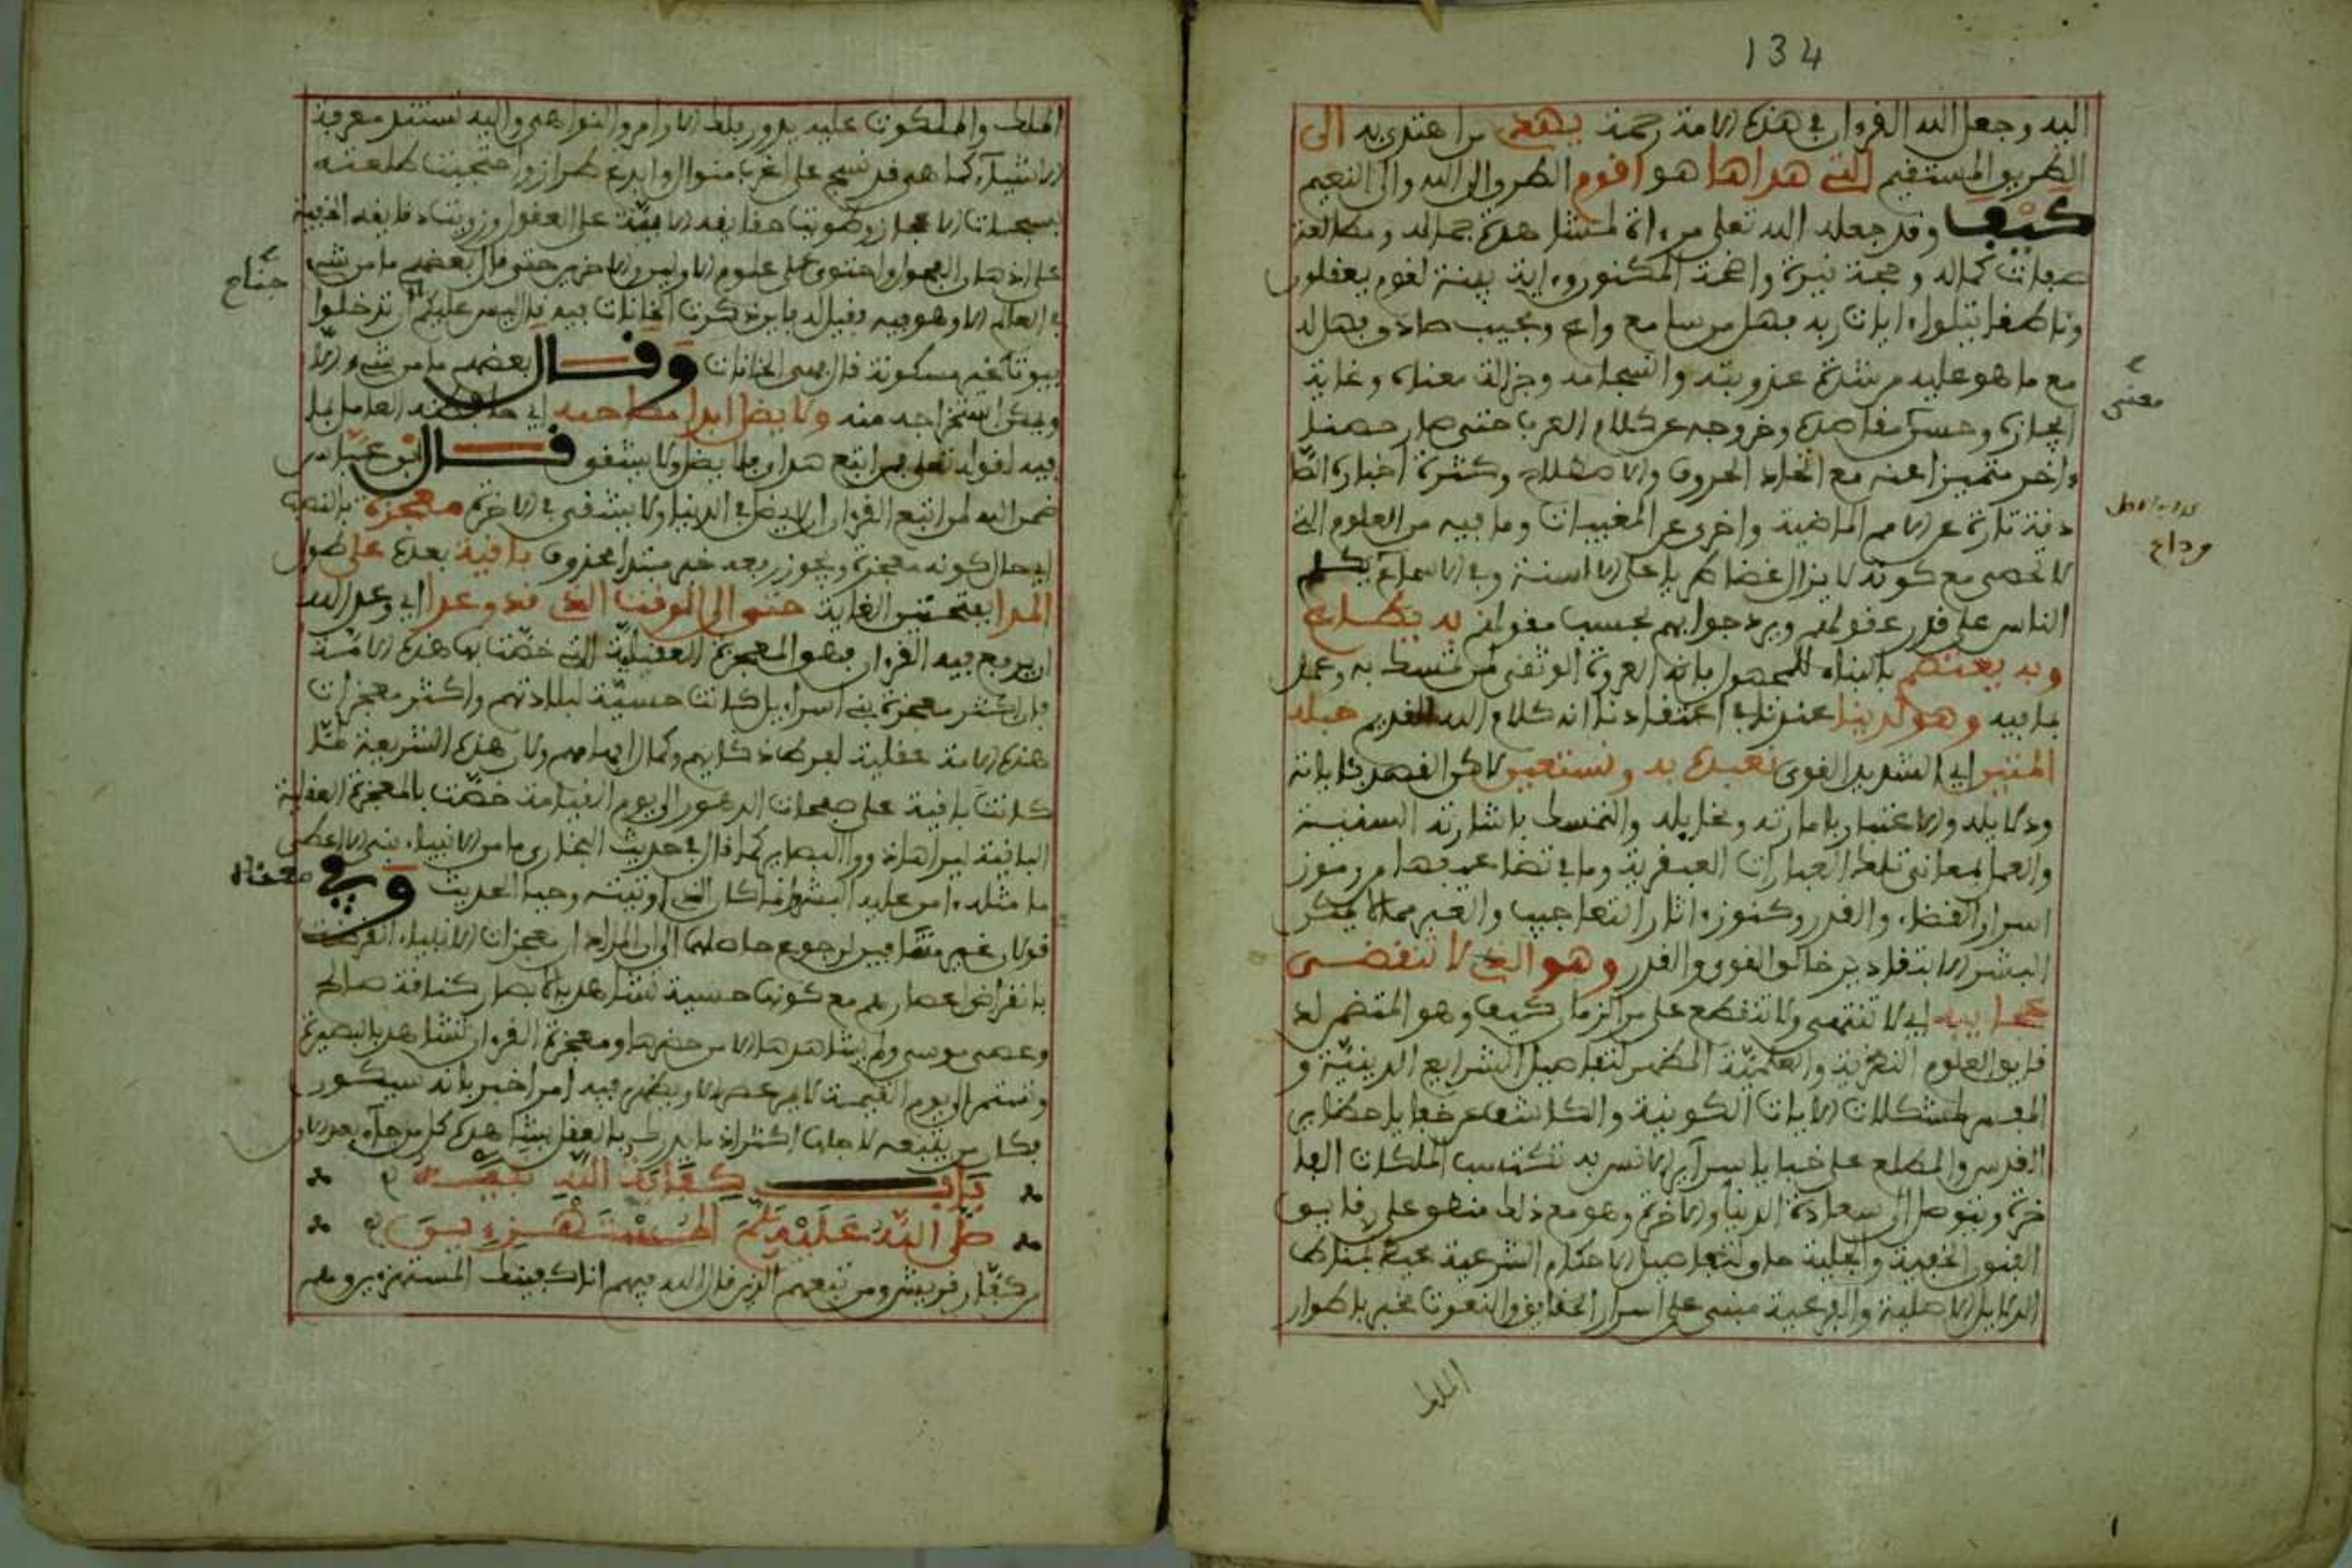 134
اليه وجعل الله القرءان في هذه الامة رحمة يهدي من اهتدى به الى
الطريق المستقيم التي هداها هو اقوم الطرق الى الله والى النعيم
كيف وقد جعله الله تعلى مرءاة لمشاهدة جماله ومطالعة
صفات كماله وحجة نيرة واضحة المكنون وءاية بينة لقوم يعقلون
وناطقا يتلواءايات ربه فهل من سامع واع ومجيب صادق هاله
مع ما هو عليه من شدة عذوبته وانسجامه وجزالة معناه وغاية
ايجازه وحسن مقاصده وخروجه عن كلام العرب حتى صار جنسا
ءاخر متميزا عنه مع اتحاد الحروف والا وكثرة اخباره الصا
دقة تارة عن الامم الماضية واخرى عن المغيبات وما فيه من العلوم التي
لا تحصى مع كونه لا يزال غضا طريا على الالسنة وفي الاسماع يكلم
الناس على قدر عقولهم ويرد جوابهم بحسب مقولهم به
وبه يعتصم بالبناء للمجهول فانه العروة الوثقى لمن تمسك به وعمل
بما فيه وهو لدينا عندنا في اعتقادنا انه كلام الله القديم حبله
المتين اي الشديد القوي نعبده به ونستعين لاكن القصد كما بانه
ودلايله والاعتبار باماراته ومخايله والتمسك باشارته السنية
والعمل بمعاني تلك العبارات العبقرية وما في تضاعيفها من رموز
اسرار القضاء والقدر وكنوزءاثار التعاجيب والعبر مما لا يمكن
البشر الا بتقادير خالق القوى والقدر وهو الذي لا تنقضي
عجايبه اي لا تنتهي ولا تنقطع على مر الزمان كيف وهو المتضمن لد
قايق العلوم النظرية والعلمية المظهر لتفاصيل الشرايع الدينية و
المفسر لمشكلات الايات الكونية والكاشف عن خفايا حظاير
القدس والمطلع على خبايا سراير الانس به تكتسب الملكات الفا
خرة ويتوصل الى سعادة الدنيا والاخرة وهو مع ذلك منطو على دقايق
الفنون الخفية والجلية حاو لتفاصيل الاحكام الشرعية محيط بمناط
الدلايل الاصلية والفرعية مبني على اسرار الحقايق والنعوت مخبر باطوار
الملك
معنى
وداع
الملك والملكوت عليه يدور فلك الاوامر والنواهي واليه تستند معرفة
الاشياء كما هي قد نسج على اغرب منوال وابدع طراز واحتجبت طلعته
بسبحات الاعجاز وطويت حقايقه الابية على العقول وزويت دقايقه الخفية
على اذهان الفحول واحتوى على علوم الاولين والاخرين حتى قال بعضهم ما من شيء
في العالم الا وهو فيه فقيل له فاين ذكرت الخانات فيه قال ليس عليكم ان تدخلوا
بيوتا غير مسكونة قال هي الخانات وقال بعضهم ما من شيء الا
ويمكن استخراجه منه ولا يضل ابدا مصاحبه اي العامل بما
فيه لقوله تعلى فمن اتبع هداي فلا يضل ولا يشقى قال ابن عباس
ضمن الله لمن اتبع القرءان ان لا يضل في الدنيا ولا يشقى في الاخرة معجزة بالنصب
اي حال كونه معجزة ويجوز رفعه خبر مبتدا محذوف باقية بعده على طول
المدا بفتحتين الغاية حتى الى الوقت الذي قد وعدا اي وعد الله
ان يرفع فيه القرءان فهو المعجزة العقلية التي خصت بها هذه الامة
فان اكثر معجزة بني اسراءيل كانت حسية لبلادتهم واكثر معجزات
هذه الامة عقلية لفرط ذكايهم وكمال افهامهم ولان هذه الشريعة لما
كانت باقية على صفحات الدهور الى يوم القيامة خصت بالمعجزة العقلية
الباقية ليراها ذووا البصاير كما قال في حديث البخاري ما من الانبياء نبي الا اعطي
ما مثله ءامن عليه البشر وانما كان الذي اوتيته وحيا الحديث وفي معناه
قولان غير متنافيين لرجوع حاصلهما الى ان المراد ان معجزات الانبياء انقرضت
بانقراض اعصارهم مع كونها حسية تشاهد بالابصار كناقة صالح
وعصى موسى ولم يشاهدها الا من حضرها ومعجزة القرءان تشاهد بالبصيرة
وتستمر الى يوم القيمة لا يمر عصر الا ويظهر فيه امر اخبر بانه سيكون
فكان من يتبعه لاجلها اكثر اذ ما يدرك بالعقل يشاهده كل من جاء بعد الاول
باب كفاية الله نبيه
صلى الله عليه وسلم المستهزءين
من كفار قريش ومن تبعهم الذين قال الله فيهم انا كفيناك المستهزءين وهم
جناح